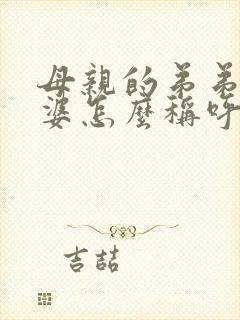 母親的弟弟
婆怎麼稱呼
吉喆